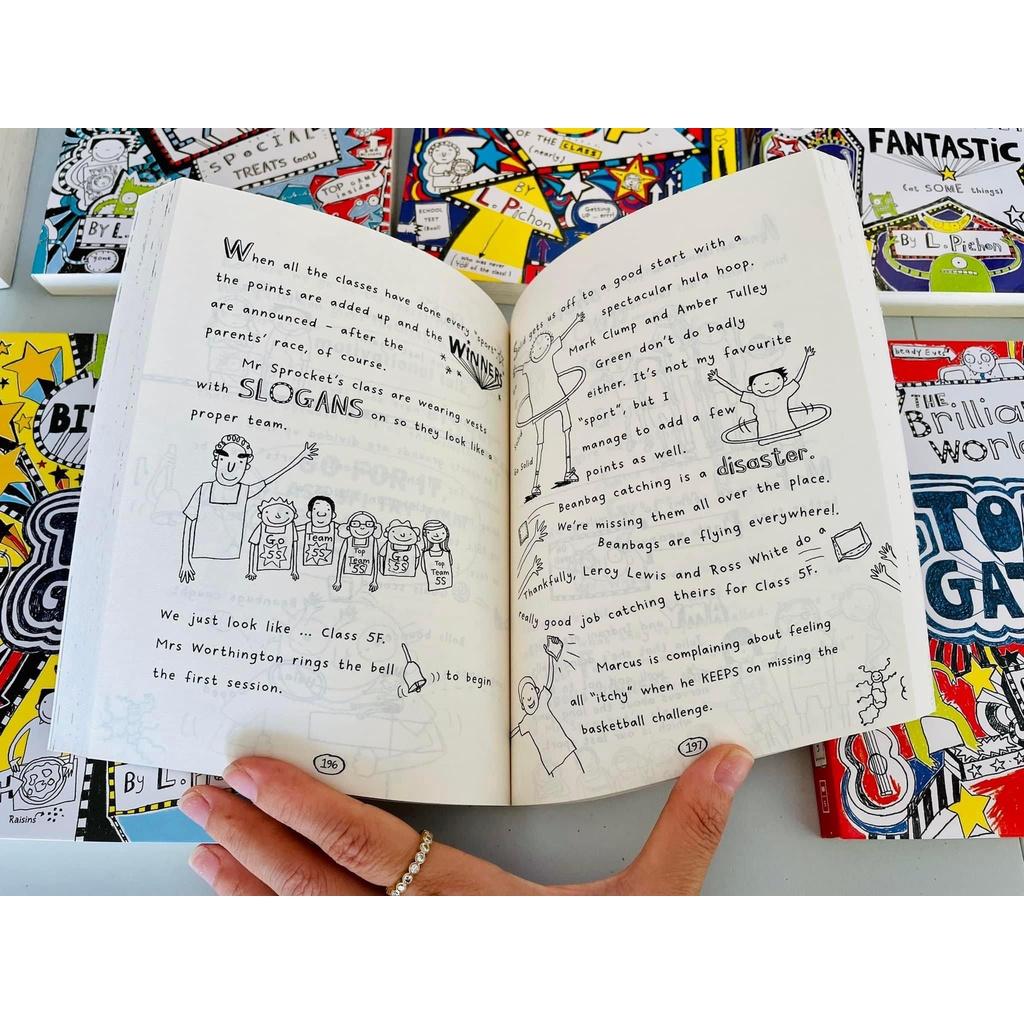 SPECIAL
TREATS (not)
TOP GAME
inside
BY L.
gone
OF THE CLASS
(nearly)
BY
L. Pichon
SCHOOL
TEST
(Bad)
Getting
UP ... err!
(who was never
TOP of the class)
FANTASTIC
(at SOME things)
By L. Pichon
When all the classes have done every "sport"
the points are added up and the WINNERS
are announced – after the
parents' race, of course.
Mr Sprocket's class are wearing vests
with SLOGANS on so they look like a
proper team.
Go
5S
Team
5S
Top
Team
5S
Go
5S
Top
Team
5S
We just look like ... Class 5F.
Mrs Worthington rings the bell
to begin
the first session.
196
gets us off to a good start with a
spectacular hula hoop.
Mark Clump and Amber Tulley
Green don't do badly
either. It's not my favourite
"sport", but I
manage to add a few
points as well.
Go Solid
Beanbag catching is a disaster.
We're missing them all over the place.
Beanbags are flying everywhere!.
Thankfully, Leroy Lewis and Ross White do a
really good job catching theirs for Class 5F.
Marcus is complaining about feeling
all "itchy" when he KEEPS on missing the
basketball challenge.
197
Raisins
By L. P
THE
Brillia
World
TO
GA